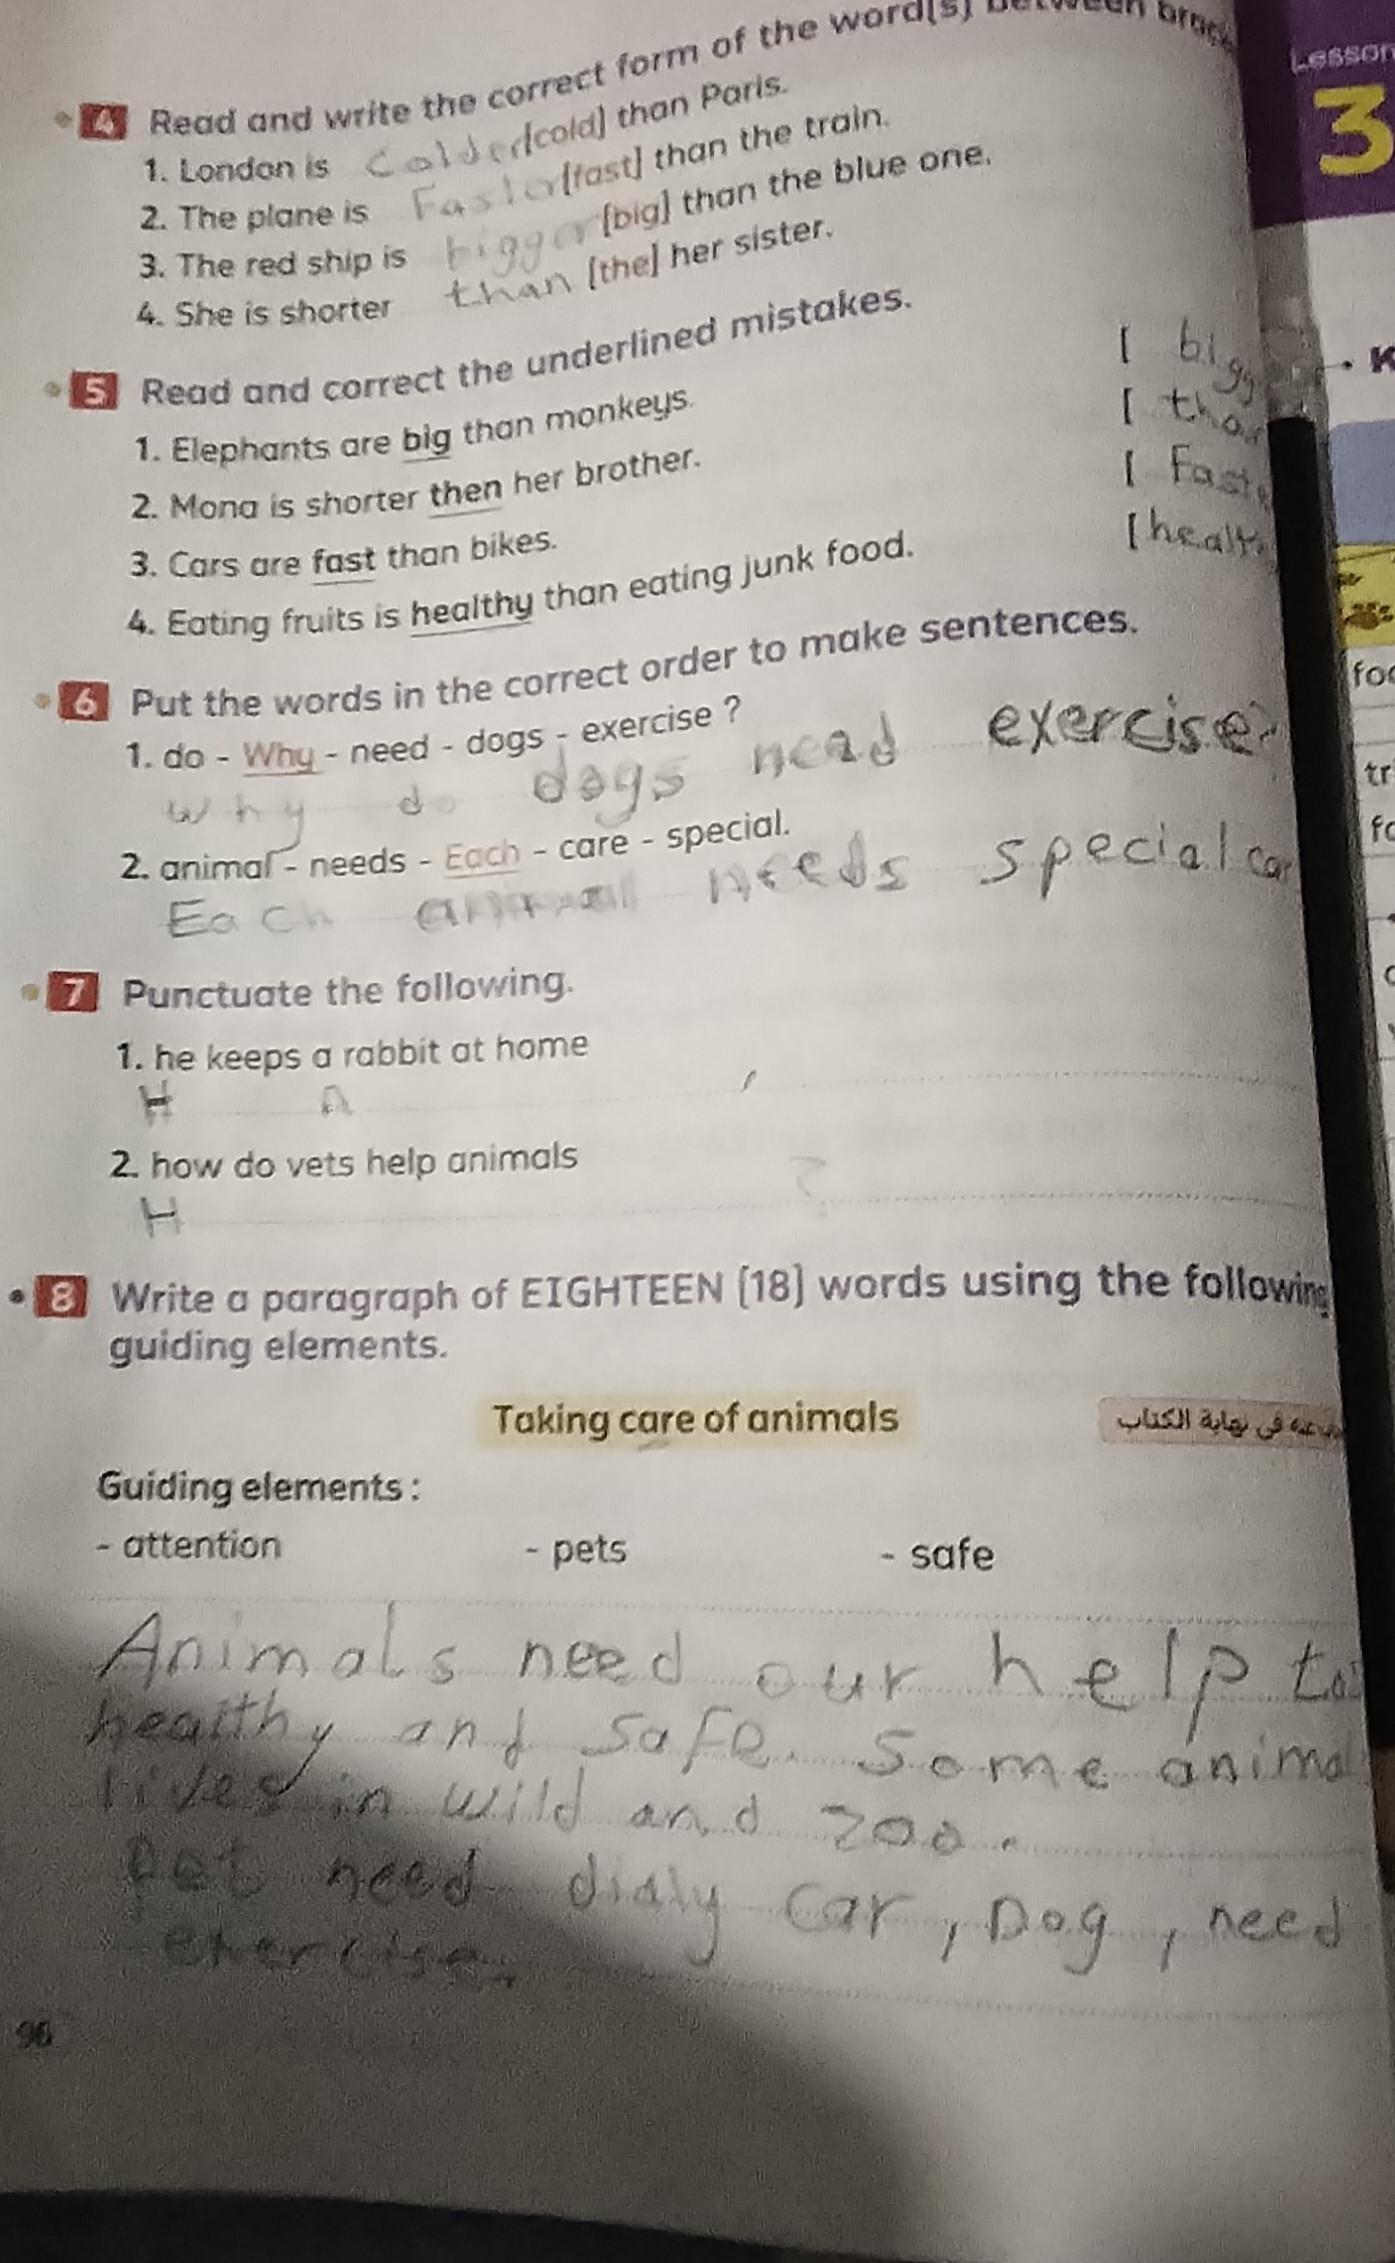 4 Read and write the correct form of the word(s) between
Lesson
3
1. London is Colder [cold] than Paris.
2. The plane is Faster [fast] than the train.
3. The red ship is bigger [big] than the blue one.
4. She is shorter than [the] her sister.
5 Read and correct the underlined mistakes.
1. Elephants are big than monkeys. [ bigg
2. Mona is shorter then her brother. [ than
3. Cars are fast than bikes. [ Faste
4. Eating fruits is healthy than eating junk food. [ healt
6 Put the words in the correct order to make sentences.
1. do - Why - need - dogs - exercise ?
Why do dogs need exercise?
2. animal - needs - Each - care - special.
Each animal needs special car
7 Punctuate the following.
1. he keeps a rabbit at home
H A
2. how do vets help animals
H ?
8 Write a paragraph of EIGHTEEN [18] words using the following
guiding elements.
Taking care of animals
فى نهاية الكتاب
Guiding elements :
- attention - pets - safe
Animals need our help to
healthy and safe. Some animal
lives in wild and zoo.
Pet need dialy car, Dog, need
exercise.
90
K
foo
tr
fo